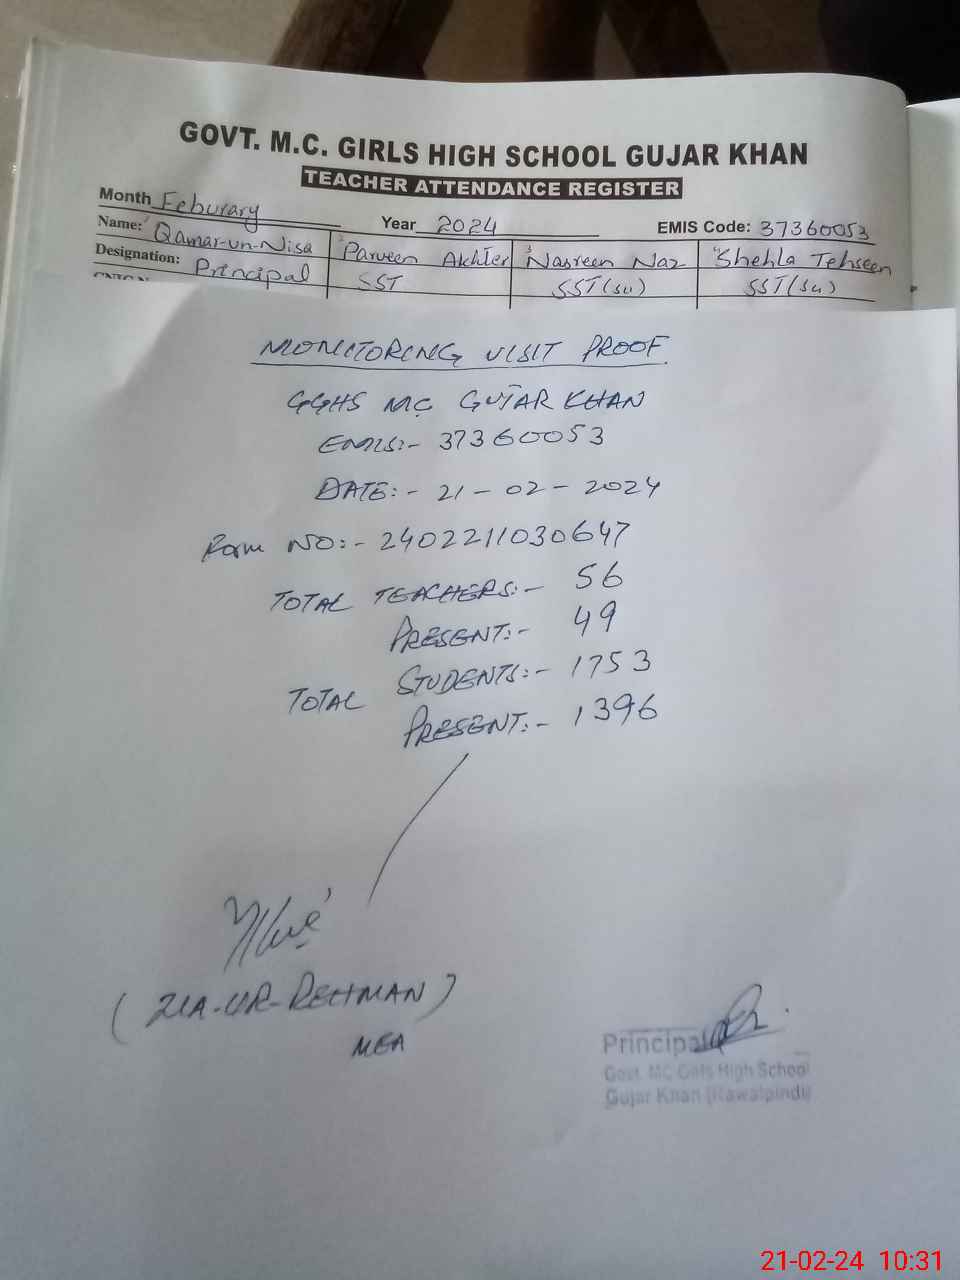 GOVT. M.C. GIRLS HIGH SCHOOL GUJAR KHAN
TEACHER ATTENDANCE REGISTER
Month Feburary Year 2024 EMIS Code: 37360053
Name: 1 Qamar-un-Nisa 2 Parveen Akhter 3 Nasreen Naz 4 Shehla Tehseen
Designation: Principal SST SST(SU) SST(SU)
MONITORING VISIT PROOF
GGHS MC GUJAR KHAN
EMIS:- 37360053
DATE:- 21-02-2024
Form NO:- 2402211030647
TOTAL TEACHERS:- 56
PRESENT:- 49
TOTAL STUDENTS:- 1753
PRESENT:- 1396
(ZIA-UR-REHMAN)
MEA
Principal
Govt. MC Girls High School
Gujar Khan (Rawalpindi)
21-02-24 10:31